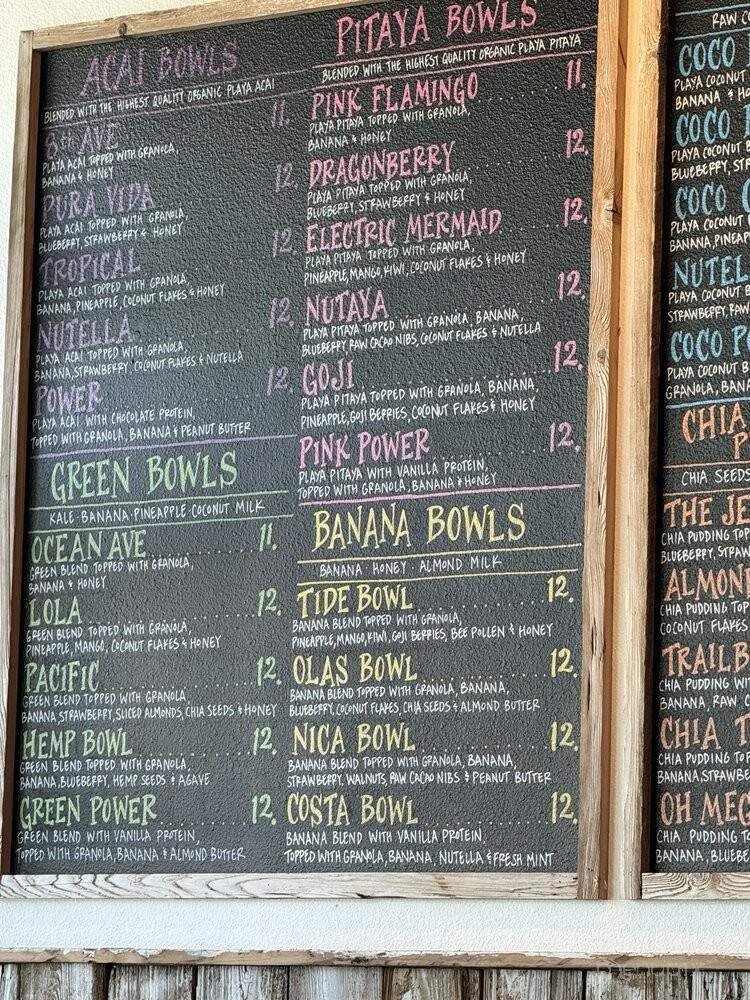 ACAI BOWLS
BLENDED WITH THE HIGHEST QUALITY ORGANIC PLAYA ACAI
8th AVE 11.
PLAYA ACAI TOPPED WITH GRANOLA,
BANANA & HONEY
PURA VIDA 12.
PLAYA ACAI TOPPED WITH GRANOLA,
BLUEBERRY, STRAWBERRY & HONEY
TROPICAL 12.
PLAYA ACAI TOPPED WITH GRANOLA,
BANANA, PINEAPPLE, COCONUT FLAKES & HONEY
NUTELLA 12.
PLAYA ACAI TOPPED WITH GRANOLA,
BANANA, STRAWBERRY, COCONUT FLAKES & NUTELLA
POWER 12.
PLAYA ACAI WITH CHOCOLATE PROTEIN,
TOPPED WITH GRANOLA, BANANA & PEANUT BUTTER
GREEN BOWLS
KALE · BANANA · PINEAPPLE · COCONUT MILK
OCEAN AVE 11.
GREEN BLEND TOPPED WITH GRANOLA,
BANANA & HONEY
LOLA 12.
GREEN BLEND TOPPED WITH GRANOLA,
PINEAPPLE, MANGO, COCONUT FLAKES & HONEY
PACIFIC 12.
GREEN BLEND TOPPED WITH GRANOLA,
BANANA, STRAWBERRY, SLICED ALMONDS, CHIA SEEDS & HONEY
HEMP BOWL 12.
GREEN BLEND TOPPED WITH GRANOLA,
BANANA, BLUEBERRY, HEMP SEEDS & AGAVE
GREEN POWER 12.
GREEN BLEND WITH VANILLA PROTEIN,
TOPPED WITH GRANOLA, BANANA & ALMOND BUTTER
PITAYA BOWLS
BLENDED WITH THE HIGHEST QUALITY ORGANIC PLAYA PITAYA
PINK FLAMINGO 11.
PLAYA PITAYA TOPPED WITH GRANOLA,
BANANA & HONEY
DRAGONBERRY 12.
PLAYA PITAYA TOPPED WITH GRANOLA,
BLUEBERRY, STRAWBERRY & HONEY
ELECTRIC MERMAID 12.
PLAYA PITAYA TOPPED WITH GRANOLA,
PINEAPPLE, MANGO, KIWI, COCONUT FLAKES & HONEY
NUTAYA 12.
PLAYA PITAYA TOPPED WITH GRANOLA, BANANA,
BLUEBERRY, RAW CACAO NIBS, COCONUT FLAKES & NUTELLA
GOJI 12.
PLAYA PITAYA TOPPED WITH GRANOLA, BANANA,
PINEAPPLE, GOJI BERRIES, COCONUT FLAKES & HONEY
PINK POWER 12.
PLAYA PITAYA WITH VANILLA PROTEIN,
TOPPED WITH GRANOLA, BANANA & HONEY
BANANA BOWLS
BANANA · HONEY · ALMOND MILK
TIDE BOWL 12.
BANANA BLEND TOPPED WITH GRANOLA,
PINEAPPLE, MANGO, KIWI, GOJI BERRIES, BEE POLLEN & HONEY
OLAS BOWL 12.
BANANA BLEND TOPPED WITH GRANOLA, BANANA,
BLUEBERRY, COCONUT FLAKES, CHIA SEEDS & ALMOND BUTTER
NICA BOWL 12.
BANANA BLEND TOPPED WITH GRANOLA, BANANA,
STRAWBERRY, WALNUTS, RAW CACAO NIBS & PEANUT BUTTER
COSTA BOWL 12.
BANANA BLEND WITH VANILLA PROTEIN,
TOPPED WITH GRANOLA, BANANA, NUTELLA & FRESH MINT
RAW
COCO
PLAYA COCONUT
BANANA & HON
COCO
PLAYA COCONUT B
BLUEBERRY, ST
COCO
PLAYA COCONUT
BANANA, PINEAP
NUTEL
PLAYA COCONUT B
STRAWBERRY, RAW
COCO P
PLAYA COCONUT B
GRANOLA, BAN
CHIA
P
CHIA SEEDS
THE JE
CHIA PUDDING TOP
BLUEBERRY, STRAW
ALMON
CHIA PUDDING TOP
COCONUT FLAKES
TRAILB
CHIA PUDDING WIT
BANANA, RAW C
CHIA T
CHIA PUDDING TOP
BANANA, STRAWBE
OH MEG
CHIA PUDDING T
BANANA, BLUEBE